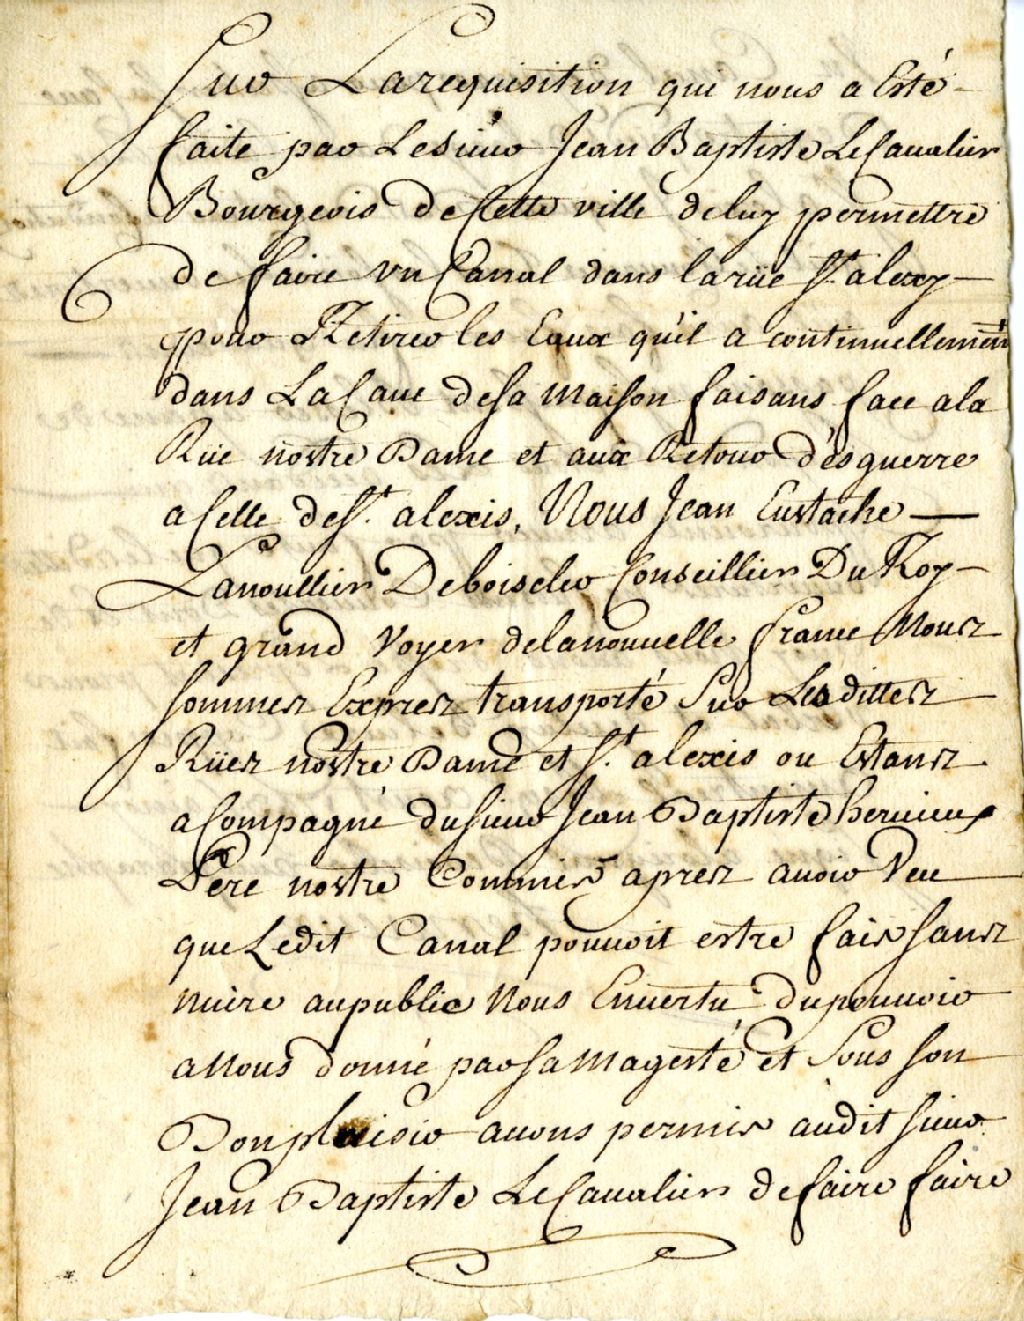 Sur La requisition qui nous a Esté
faite par Le Sieur Jean Baptiste Le Cavalier
Bourgeois de Cette ville de luy permettre
de faire un Canal dans la rüe St. alexy
pour Retirer les Eaux qu'il a continuellement
dans La Cave de sa maison faisans face a la
Rüe nostre Dame et aux Retour d'esquerre
a Celle de St. alexis, Nous Jean Eustache
Lanoullier Deboiscler Conseillier Du Roy
et grand Voyer de la nouvelle france Nous
sommes Expres transporté Sur Les dittes
Rües nostre Dame et St. alexis ou Estans
acompagné du Sieur Jean Baptiste hervieux
Pere nostre Commis apres avoir Veu
que Ledit Canal pouvoit estre fais sans
nuire au public Nous En vertu du pouvoir
a Nous donné par sa Magesté et Sous son
Bon plaisir avons permis audit Sieur
Jean Baptiste Le Cavalier de faire faire